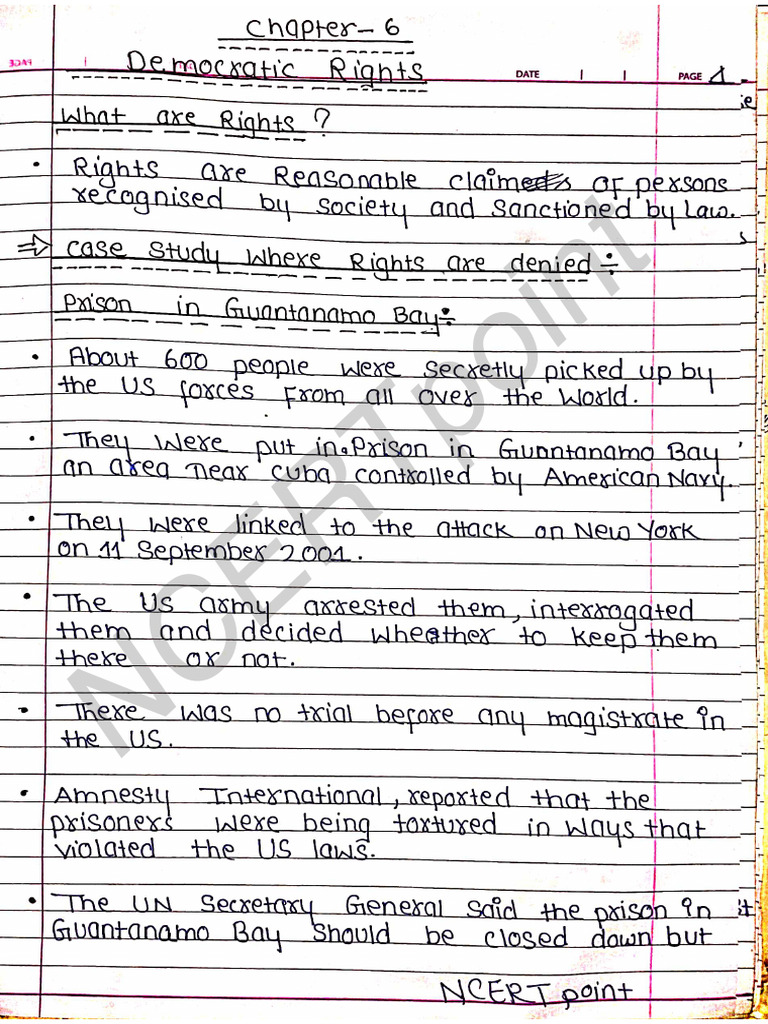 Chapter-6
Democratic Rights
DATE
PAGE 1
What are Rights?
• Rights are Reasonable claims of persons
recognised by society and sanctioned by Law.
⇒ Case Study Where Rights are denied ÷
Prison in Guantanamo Bay ÷
• About 600 people were secretly picked up by
the US forces from all over the World.
• They were put in Prison in Guantanamo Bay,
an area near Cuba controlled by American Navy.
• They were linked to the attack on New York
on 11 September 2001.
• The US army arrested them, interrogated
them and decided wheather to keep them
there or not.
• There was no trial before any magistrate in
the US.
• Amnesty International, reported that the
prisoners were being tortured in ways that
violated the US laws.
• The UN Secretary General said the prison in
Guantanamo Bay should be closed down but
NCERT point
NCERTpoint